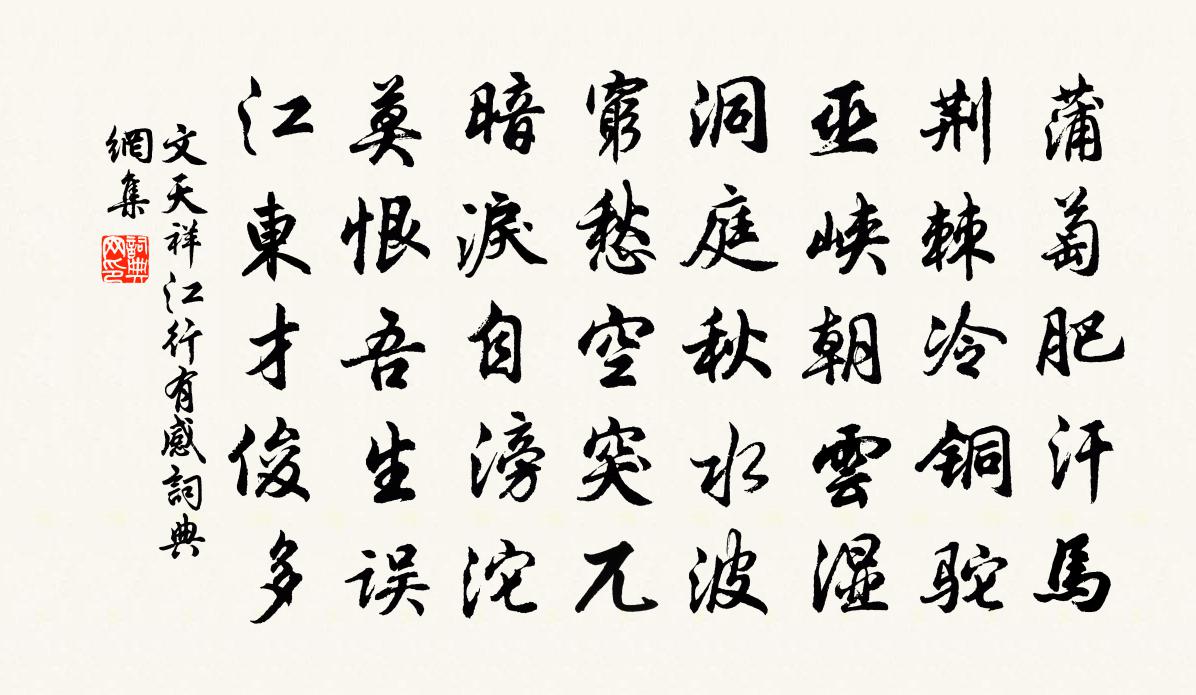 蒲萄肥汗馬
荆棘冷铜驼
巫峡朝雲濕
洞庭秋水波
窮愁空突兀
暗淚自滂沱
莫恨吾生误
江東才俊多
文天祥江行有感詞典
網集
詞典
网印